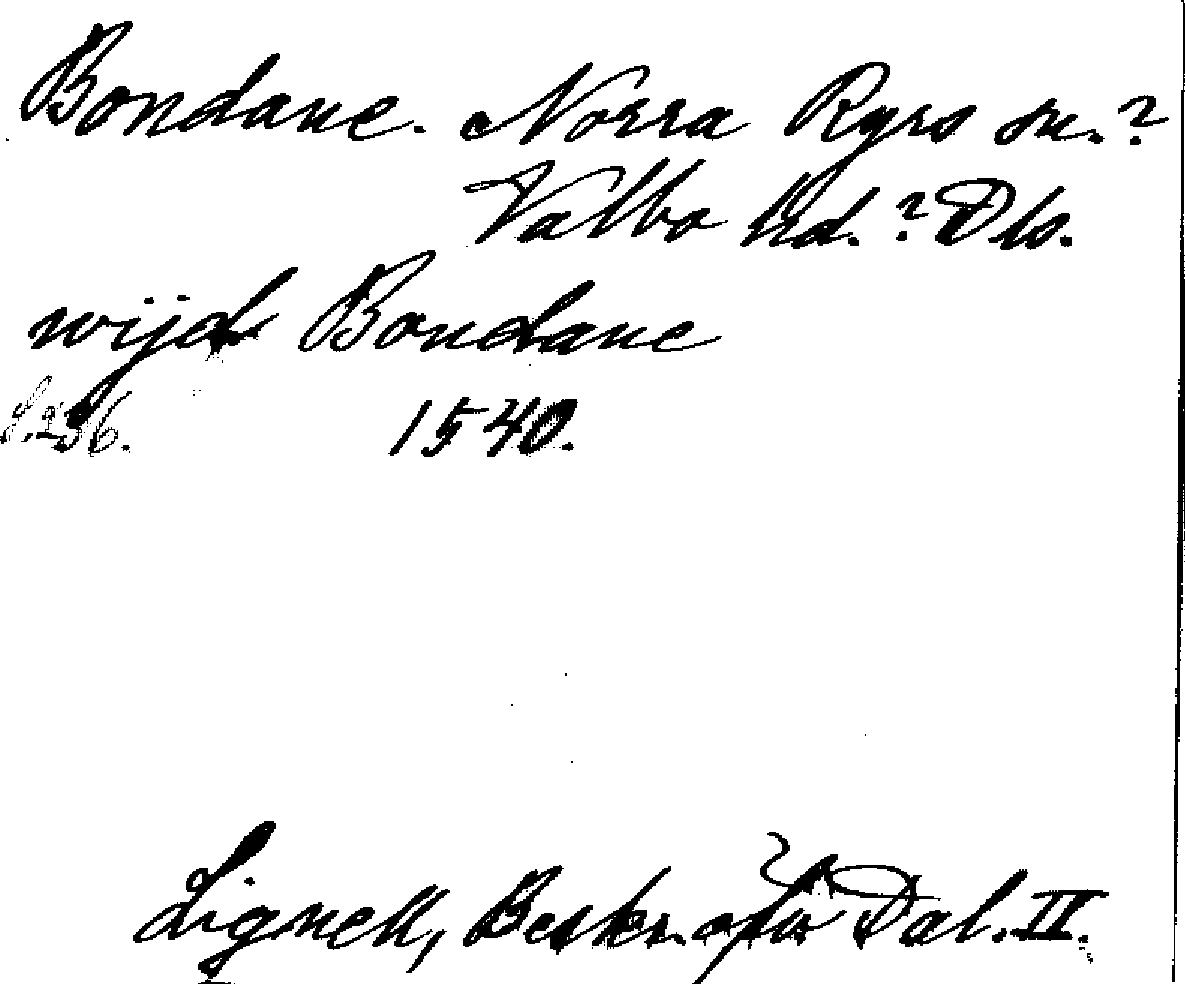 Bondane. Norra Ryrs sn.?
Valbo hd.? Dls.
wijd Bondane
S. 236. 1540.
Lignell, Beskr. öfv. Dal. II.